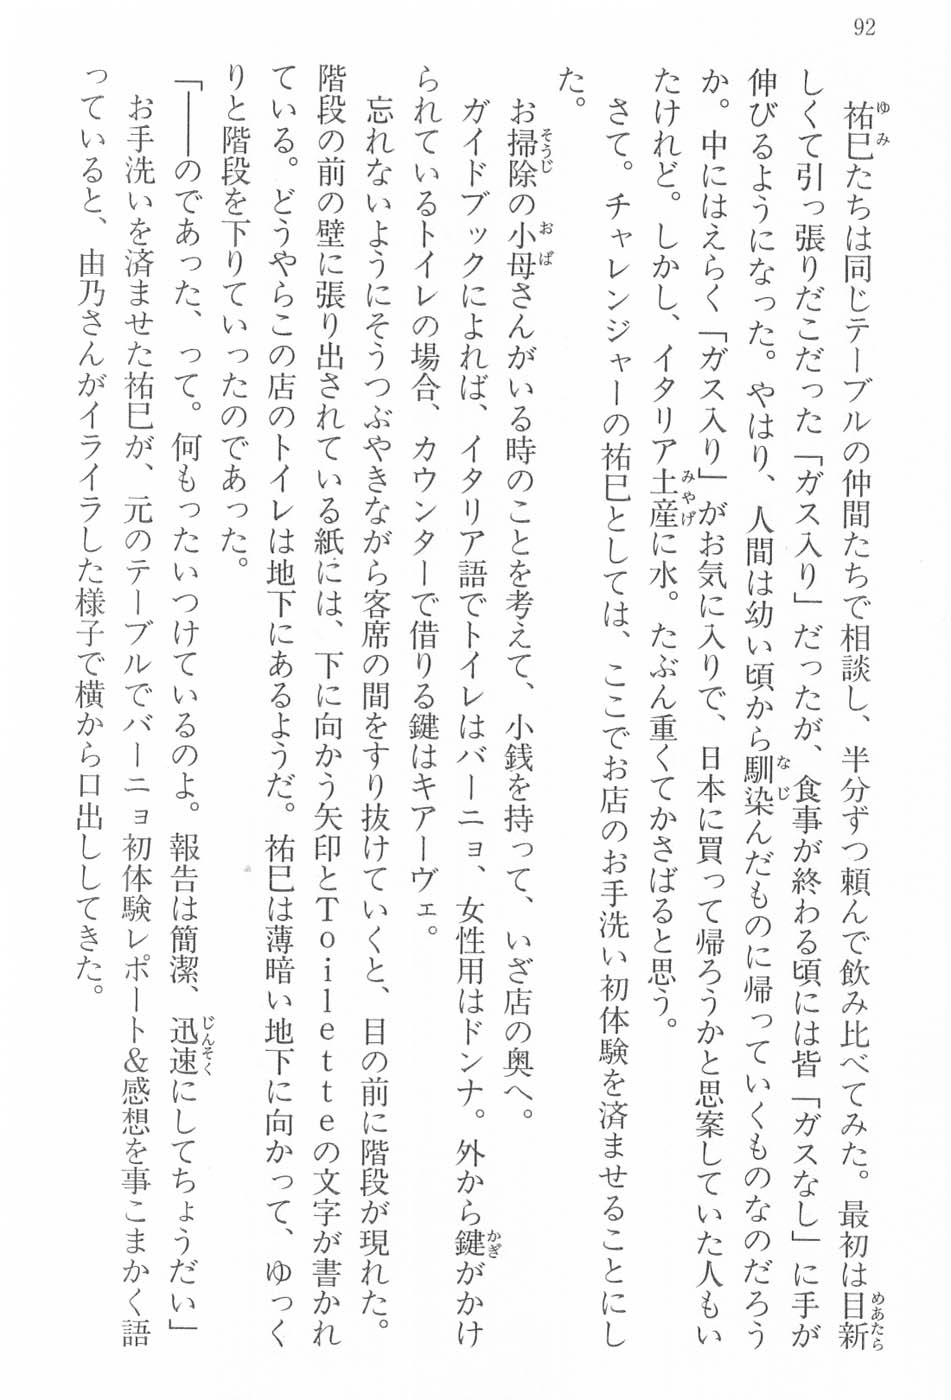 92
祐巳たちは同じテーブルの仲間たちで相談し、半分ずつ頼んで飲み比べてみた。最初は目新
しくて引っ張りだこだった「ガス入り」だったが、食事が終わる頃には皆「ガスなし」に手が
伸びるようになった。やはり、人間は幼い頃から馴染んだものに帰っていくものなのだろう
か。中にはえらく「ガス入り」がお気に入りで、日本に買って帰ろうかと思案していた人もい
たけれど。しかし、イタリア土産に水。たぶん重くてかさばると思う。
さて。チャレンジャーの祐巳としては、ここでお店のお手洗い初体験を済ませることにし
た。
お掃除の小母さんがいる時のことを考えて、小銭を持って、いざ店の奥へ。
ガイドブックによれば、イタリア語でトイレはバーニョ、女性用はドンナ。外から鍵がかけ
られているトイレの場合、カウンターで借りる鍵はキアーヴェ。
忘れないようにそうつぶやきながら客席の間をすり抜けていくと、目の前に階段が現れた。
階段の前の壁に張り出されている紙には、下に向かう矢印とＴｏｉｌｅｔｔｅの文字が書かれ
ている。どうやらこの店のトイレは地下にあるようだ。祐巳は薄暗い地下に向かって、ゆっく
りと階段を下りていったのであった。
「――のであった、って。何もったいつけているのよ。報告は簡潔、迅速にしてちょうだい」
お手洗いを済ませた祐巳が、元のテーブルでバーニョ初体験レポート＆感想を事こまかく語
っていると、由乃さんがイライラした様子で横から口出ししてきた。